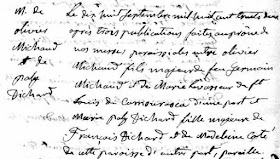 M. de
olivier
Michaud
et de
poly
Dichard
Le dix sept Septembre mil huit cent
après trois publications faites au prone de
nos messes paroissiales entre olivier
Michaud fils majeur de feu Germain
Michaud et de Marie levasseur de St
Louis de Camouraska d'une part et
Marie poly Dichard fille majeure de
François Dichard et de Madeleine Cote
de cette paroisse d'autre part, pareille